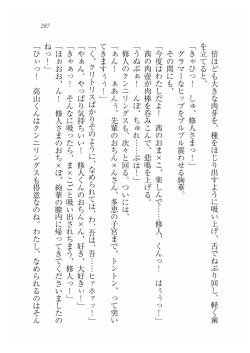 287
倍ほども大きな肉芽を、種をほじり出すように吸い上げ、舌でねぶり回し、軽く歯
を立てると、
「きゃひっ！　しゅ、修人さまっ！」
グラマーなヒップをプルプル震わせる絢華。
その間にも、
「今度はわたしだ！　茜のおま×こ、楽しんで……修人、くんっ！　はぅぅっ！」
茜の肉壺が肉棒を呑みこんで、悲鳴を上げる。
「うぬぷぁ！　んぷ、じゅるる！」
修人のクンニリングスも、次々と回る。ついには、
「ぁんっ！　あんんぅぅ、先輩のおちん×んさん、多恵の子宮まで、トントン、って突い
てきますぅぅ！」
「く、クリトリスばかりそのように、なめられては、わ、吾は、吾……ヒァホァァッ！」
「やぁん、やっぱり気持ちいい！　修人くんのおちん×ん、好き、大好きぃ！」
「きゃぁっ！　そんなに吸ったら、ま×こごと吸い出されちまう、修人っ！」
「ほぉおお、ん！　修人さまのおち×ぽ、絢華の膣内に帰ってきてくださいましたの
ねっ！」
「ひぃっ！　高山くんはクンニリングスも得意なのね。わたし、なめられるのはそん